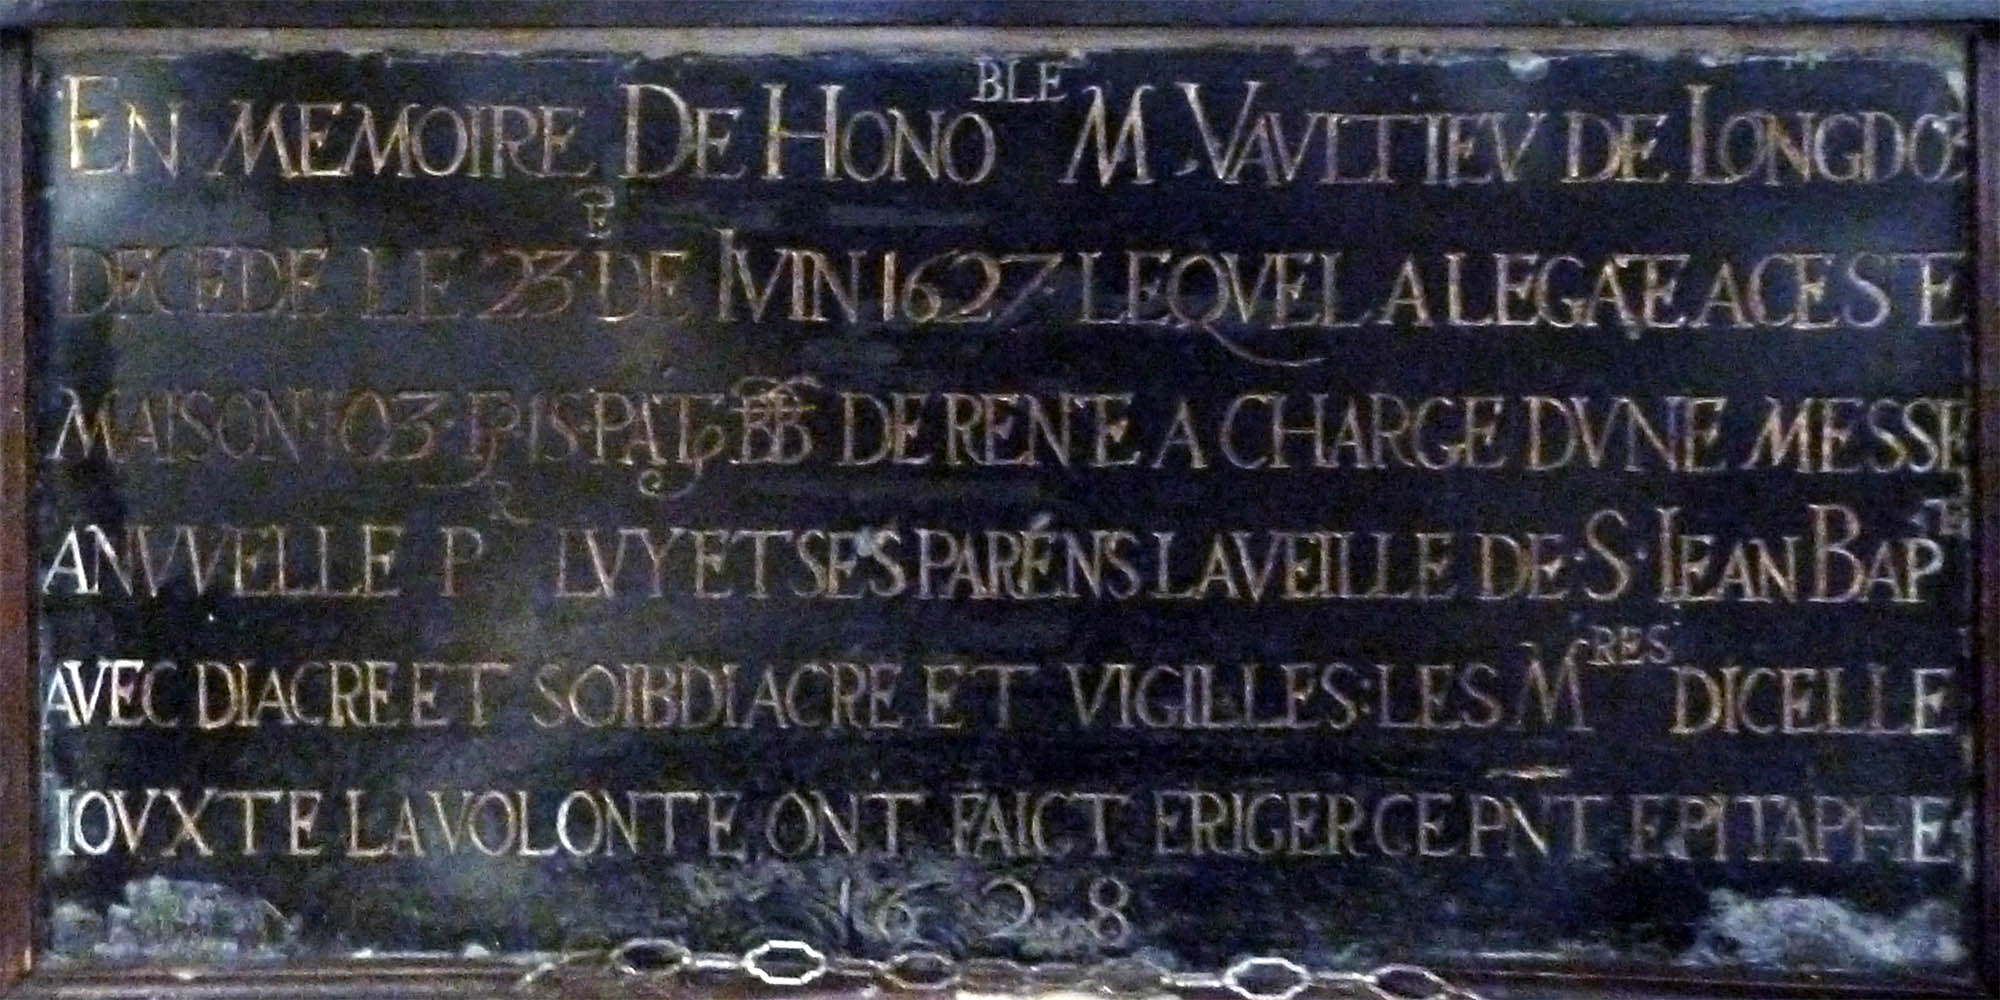 EN MEMOIRE DE HONO^BLE M VAVLTIEV DE LONGDOZ
DECEDE LE 23^E DE IVIN 1627 LEQVEL A LEGATE A CESTE
MAISON 103 DE RENTE A CHARGE DVNE MESSE
ANVVELLE P^R LVY ET SES PARÉNS LA VEILLE DE·S·IEAN BAP^TE
AVEC DIACRE ET SOIBDIACRE ET VIGILLES·LES M^RES DICELLE
IOVXTE LA VOLONTE ONT FAICT ERIGER CE PÑT EPITAPHE
1628